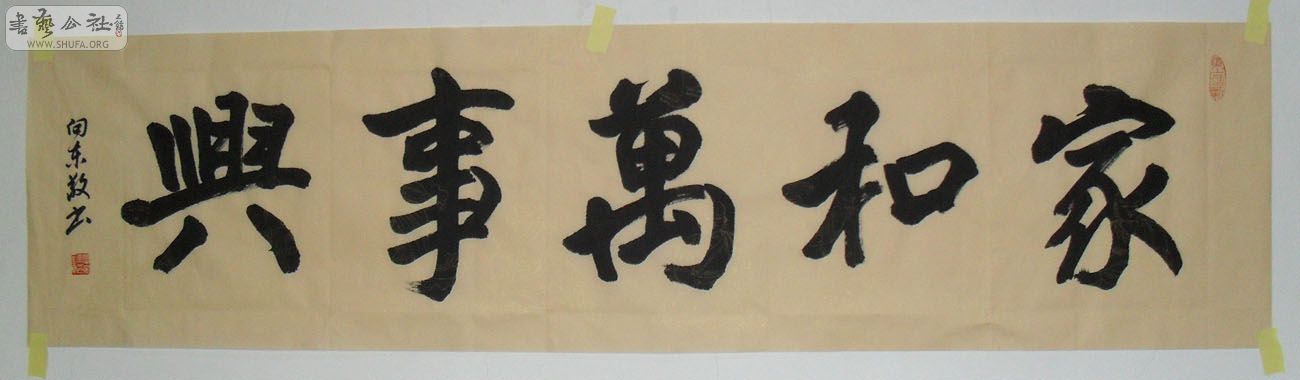 家和萬事興
向东敬书
書藝公社
WWW.SHUFA.ORG